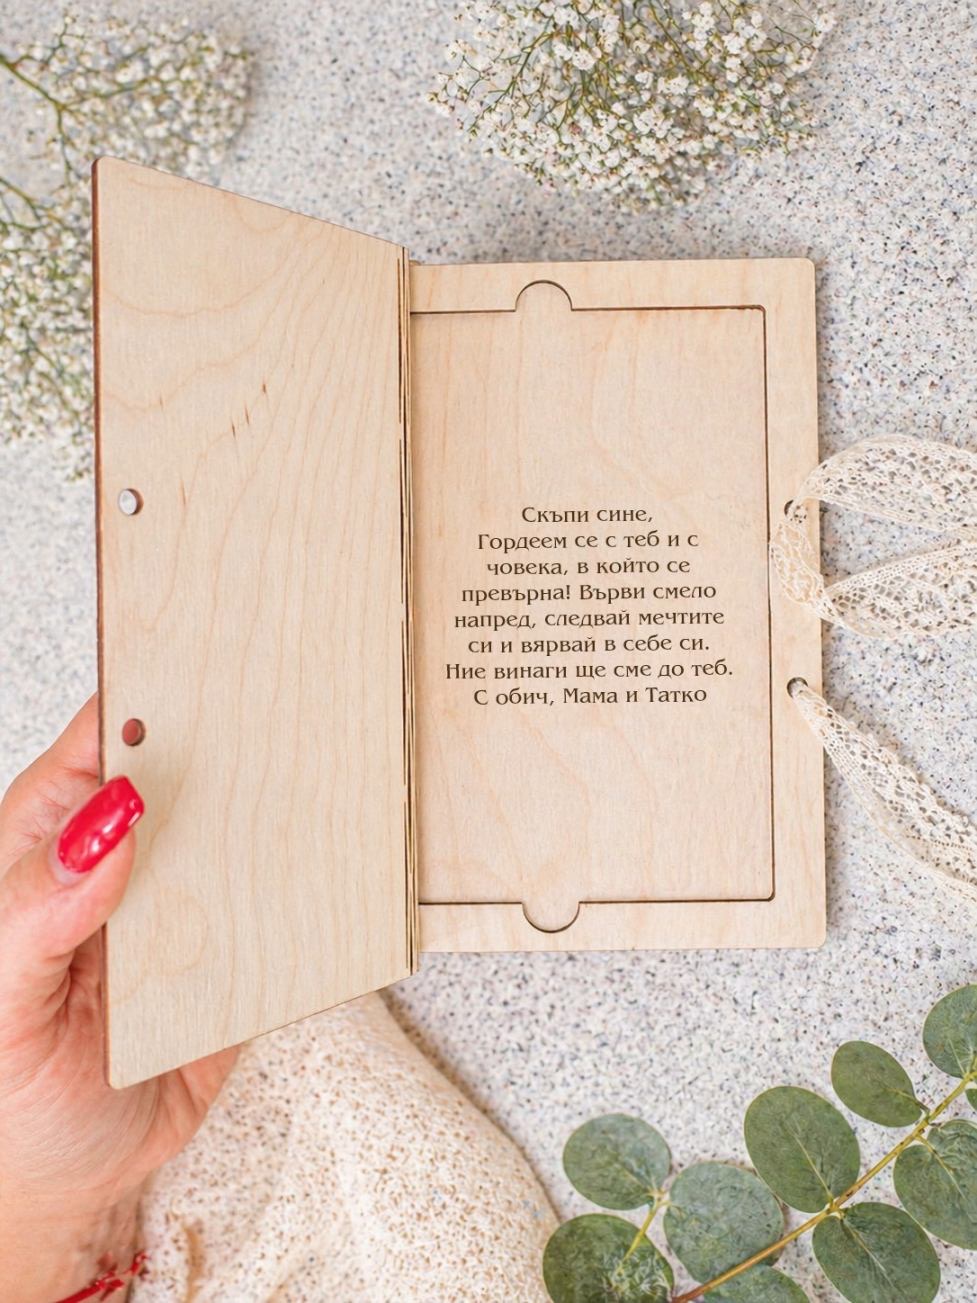 Скъпи сине,
Гордеем се с теб и с
човека, в който се
превърна! Върви смело
напред, следвай мечтите
си и вярвай в себе си.
Ние винаги ще сме до теб.
С обич, Мама и Татко